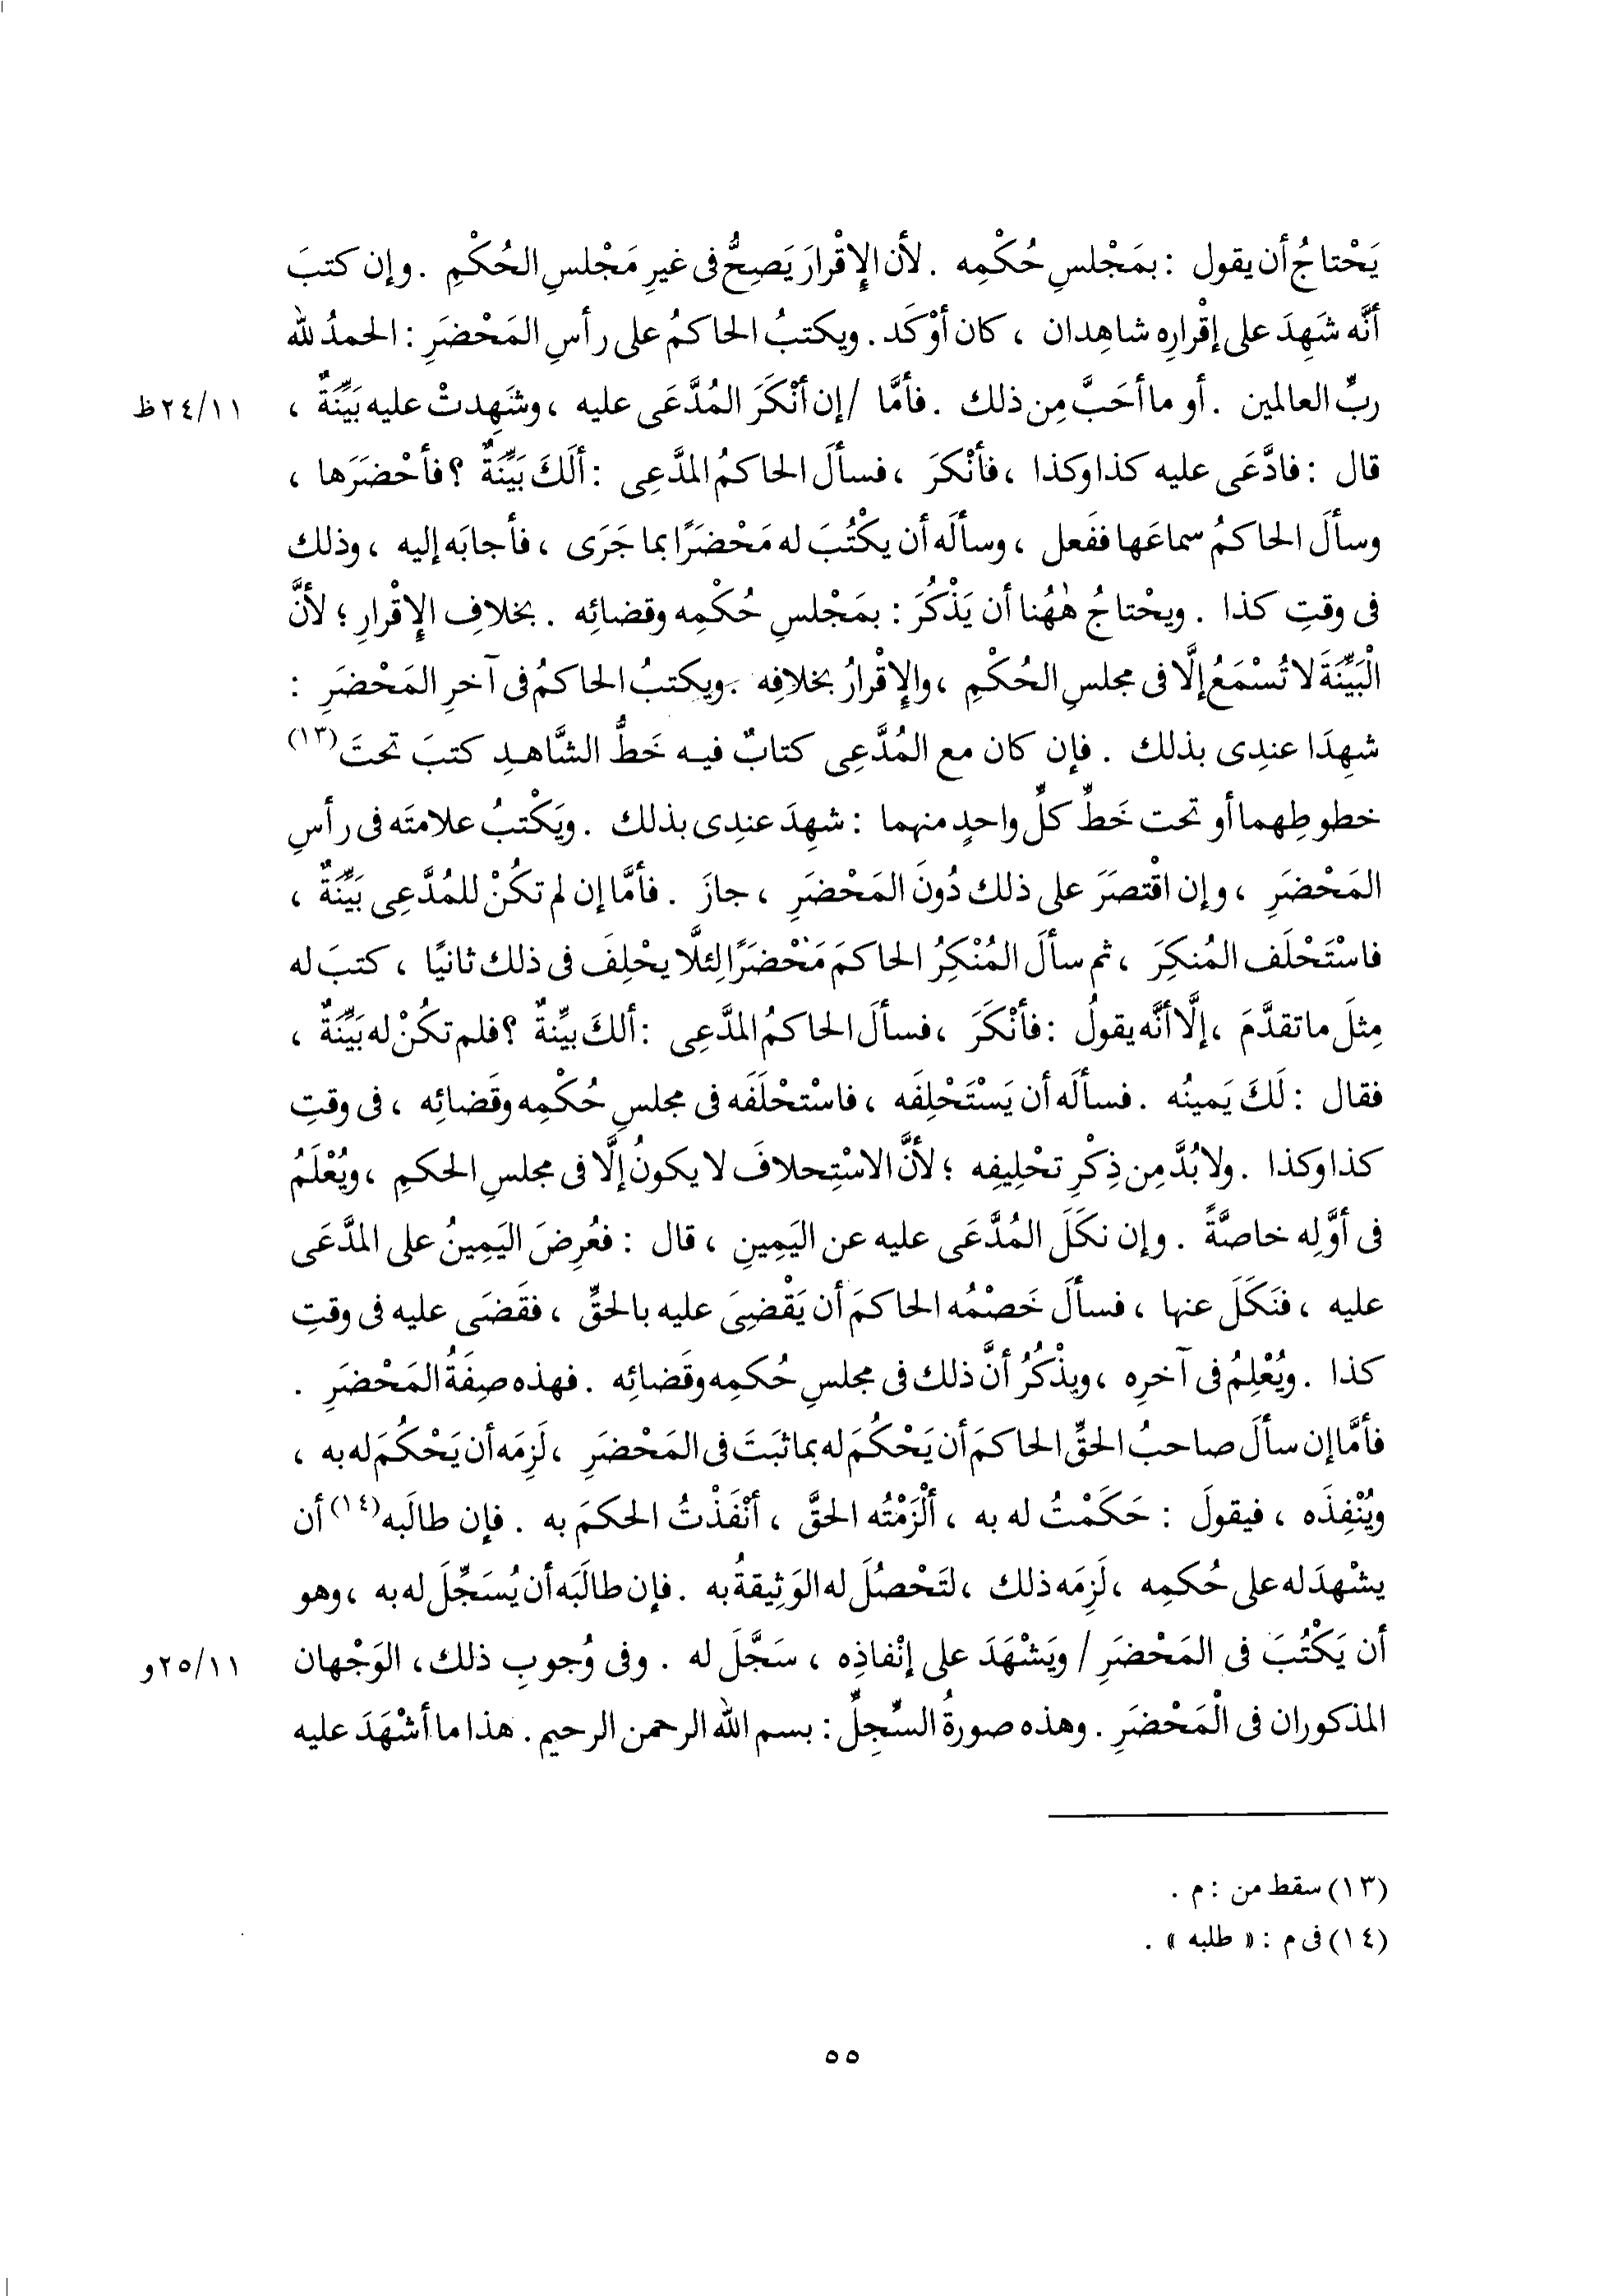 يَحْتاجُ أن يقول : بمَجْلسِ حُكْمِه . لأن الإِقْرارَ يَصِحُّ فى غيرِ مَجْلسِ الحُكْمِ . وإن كتبَ
أنَّه شَهِدَ على إقْرارِه شاهِدان ، كان أوْكَد . ويكتبُ الحاكمُ على رأسِ المَحْضَرِ : الحمدُ لله
ربِّ العالمين . أو ما أحَبَّ مِن ذلك . فأمَّا / إن أنْكَرَ المُدَّعَى عليه ، وشَهِدتْ عليه بَيِّنَةٌ ، ٢٤/١١ظ
قال : فادَّعَى عليه كذا وكذا ، فأنْكَرَ ، فسألَ الحاكمُ المدَّعِى : ألَكَ بَيِّنَةٌ ؟ فأحْضَرَها ،
وسألَ الحاكمُ سماعَها ففَعل ، وسألَه أن يكْتُبَ له مَحْضَرًا بما جَرَى ، فأجابَه إليه ، وذلك
فى وقتِ كذا . ويحْتاجُ هٰهُنا أن يَذْكُرَ : بمَجْلسِ حُكْمِه وقضائِه . بخلافِ الإِقْرارِ ؛ لأنَّ
الْبَيِّنَةَ لا تُسْمَعُ إلَّا فى مجلسِ الحُكْمِ ، والإِقْرارُ بخلافِه . ويكتبُ الحاكمُ فى آخرِ المَحْضَرِ :
شهِدَا عندِى بذلك . فإن كان مع المُدَّعِى كتابٌ فيه خَطُّ الشَّاهدِ كتبَ تحتَ(١٣)
خطوطِهما أو تحت خَطِّ كلِّ واحدٍ منهما : شهِدَ عندِى بذلك . ويَكْتبُ علامتَه فى رأسِ
المَحْضَرِ ، وإن اقْتصَرَ على ذلك دُونَ المَحْضَرِ ، جازَ . فأمَّا إن لم تكُنْ للمُدَّعِى بَيِّنَةٌ ،
فاسْتَحْلَف المُنكِرَ ، ثم سألَ المُنْكِرُ الحاكمَ مَحْضَرًا لِئلَّا يحْلِفَ فى ذلك ثانيًا ، كتبَ له
مِثلَ ما تقدَّمَ ، إلَّا أنَّه يقولُ : فأنْكَرَ ، فسألَ الحاكمُ المدَّعِى : ألكَ بيِّنةٌ ؟ فلم تكُنْ له بَيِّنَةٌ ،
فقال : لَكَ يَمينُه . فسألَه أن يَسْتَحْلِفَه ، فاسْتحْلَفَه فى مجلسِ حُكْمِه وقَضائِه ، فى وقتِ
كذا وكذا . ولا بُدَّ مِن ذِكْرِ تحْلِيفِه ؛ لأنَّ الاسْتِحلافَ لا يكونُ إلَّا فى مجلسِ الحكمِ ، ويُعْلَمُ
فى أوَّلِه خاصَّةً . وإن نكَلَ المُدَّعَى عليه عن اليَمِينِ ، قال : فعُرِضَ اليَمِينُ على المدَّعَى
عليه ، فنَكَلَ عنها ، فسألَ خَصْمُه الحاكمَ أن يَقْضِىَ عليه بالحَقِّ ، فقَضَى عليه فى وقتِ
كذا . ويُعْلِمُ فى آخرِه ، ويذْكُرُ أنَّ ذلك فى مجلسِ حُكمِه وقَضائِه . فهذه صِفَةُ المَحْضَرِ .
فأمَّا إن سألَ صاحبُ الحقِّ الحاكمَ أن يَحْكُمَ له بما ثبَتَ فى المَحْضَرِ ، لَزِمَه أن يَحْكُمَ له به ،
ويُنْفِذَه ، فيقولَ : حَكَمْتُ له به ، ألْزَمْتُه الحقَّ ، أنْفَذْتُ الحكمَ به . فإن طالَبه(١٤) أن
يشْهدَ له على حُكمِه ، لَزِمَه ذلك ، لتَحْصُلَ له الوَثِيقةُ به . فإن طالَبَه أن يُسَجِّلَ له به ، وهو
أن يَكْتُبَ فى المَحْضَرِ / ويَشْهَدَ على إنْفاذِه ، سَجَّلَ له . وفى وُجوبِ ذلك، الوَجْهان ٢٥/١١و
المذكوران فى الْمَحْضَرِ . وهذه صورةُ السِّجِلِّ : بسم الله الرحمن الرحيم . هذا ما أشْهَدَ عليه
(١٣) سقط من : م .
(١٤) فى م : « طلبه » .
٥٥